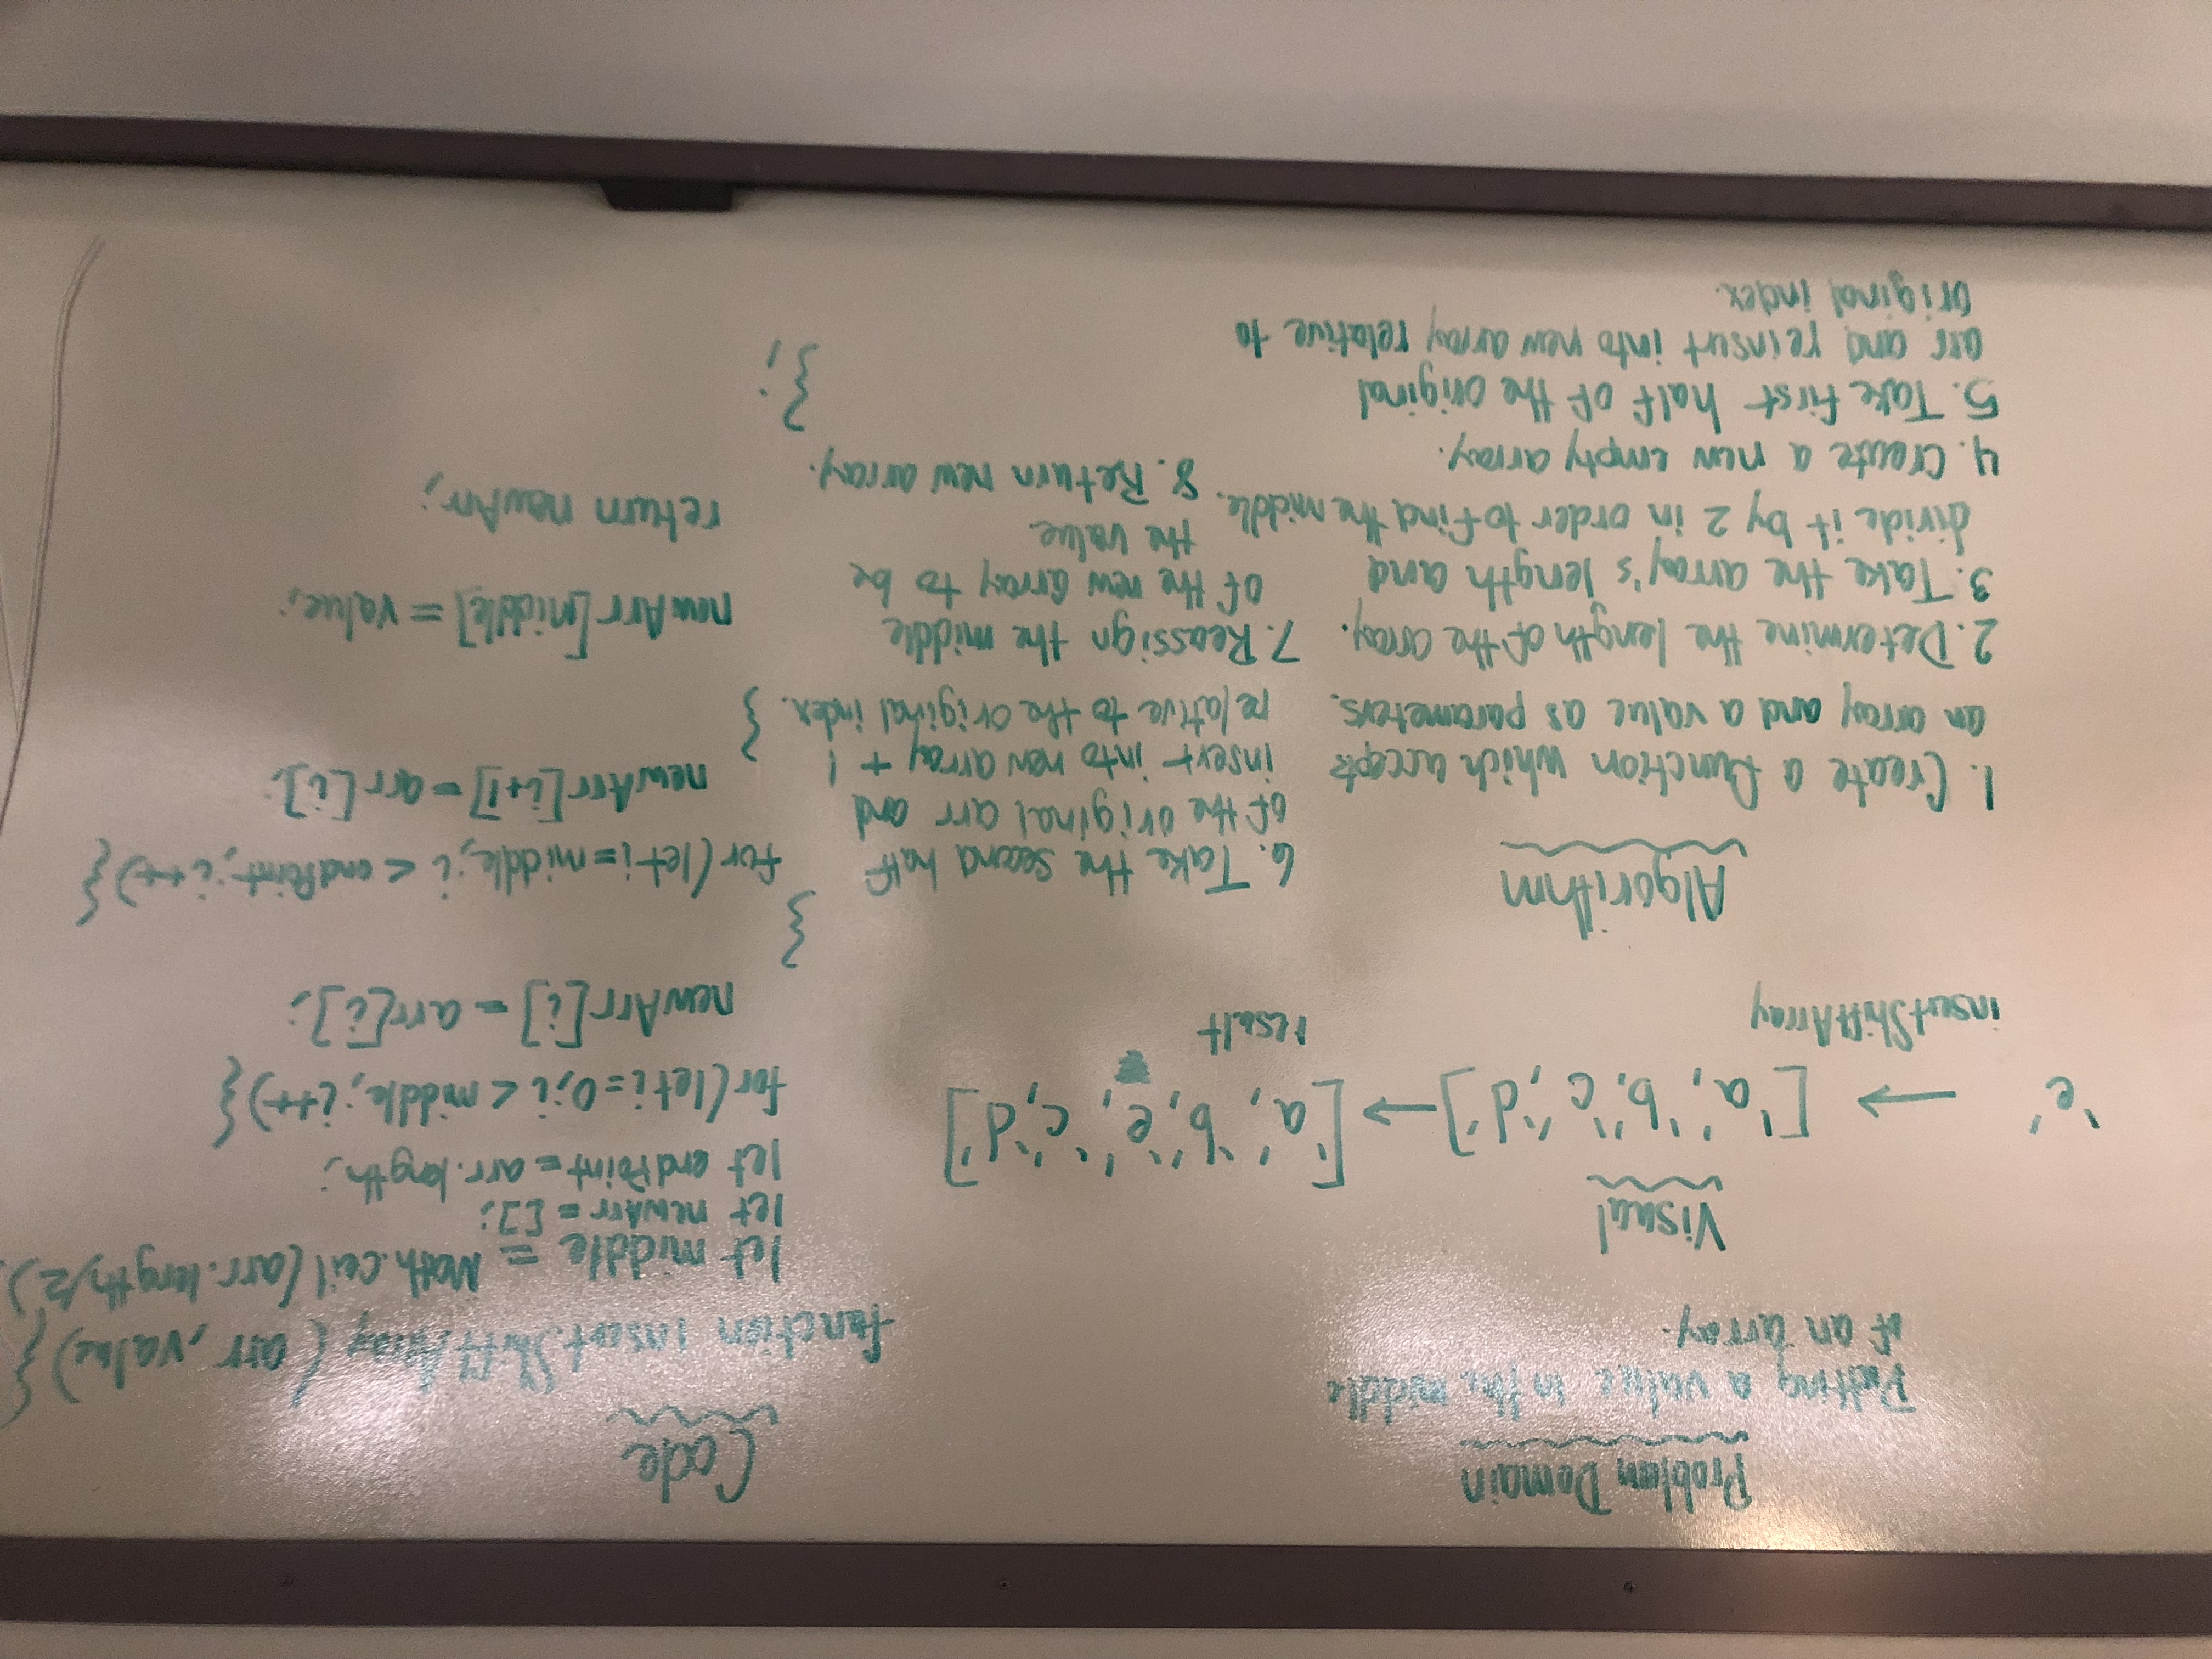 Problem Domain
Putting a value in the middle
of an array.
Visual
'e' → ['a', 'b', 'c', 'd'] → ['a', 'b', 'e', 'c', 'd']
insertShiftArray
result
Algorithm
1. Create a function which accepts
an array and a value as parameters.
2. Determine the length of the array.
3. Take the array's length and
divide it by 2 in order to find the middle.
4. Create a new empty array.
5. Take first half of the original
arr and reinsert into new array relative to
original index.
6. Take the second half
of the original arr and
insert into new array + 1
relative to the original index.
7. Reassign the middle
of the new array to be
the value
8. Return new array.
Code
function insertShiftArray (arr, value) {
let middle = Math.ceil(arr.length/2);
let newArr = [];
let endPoint = arr.length;
for(let i=0; i < middle; i++){
newArr[i] = arr[i];
}
for(let i=middle; i < endPoint; i++){
newArr[i+1] = arr[i];
}
newArr[middle] = value;
return newArr;
};